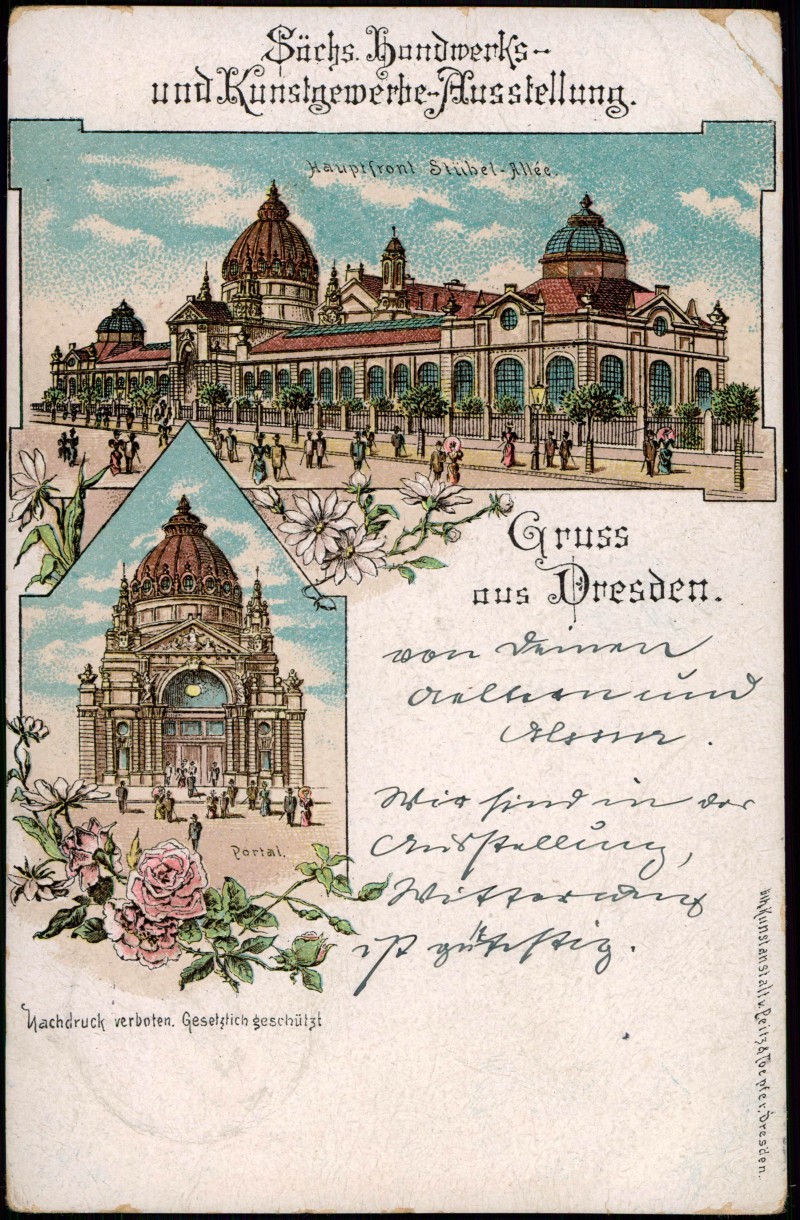 Sächs. Handwerks-
und Kunstgewerbe-Ausstellung.
Hauptfront Stübel-Allée.
Gruss
aus Dresden.
von Deinen
Aeltern und
Wir sind in der
Ausstellung,
Witterung
ist günstig.
Portal.
Nachdruck verboten. Gesetzlich geschützt
Lith. Kunstanstalt v. Peitz & Toepfer, Dresden.